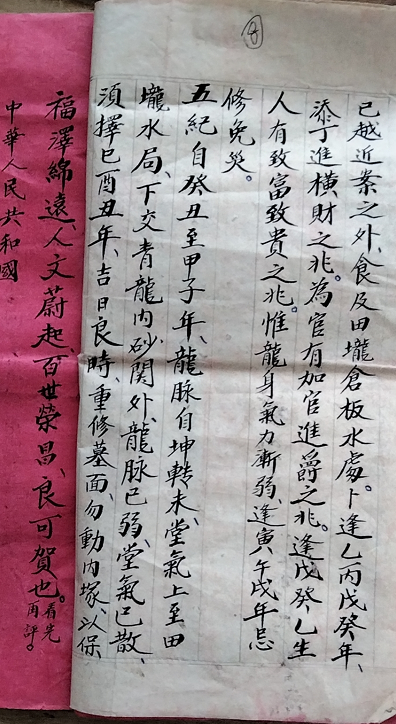 8
已越近案之外、食及田壠倉板水處。卜逢乙丙戊癸年、
添丁進橫財之兆。為官有加官進爵之兆。逢戊癸乙生
人有致富致貴之兆。惟龍身氣力漸弱、逢寅午戌年忌
修免災。
五紀自癸丑至甲子年、龍脉自坤轉未、堂氣上至田
壠水局、下交青龍內砂関外、龍脉已弱、堂氣已散、
須擇巳酉丑年、吉日良時、重修墓面、勿動內塚、以保
福澤綿遠、人文蔚起、百世榮昌、良可賀也。看先再評。
中華人民共和國